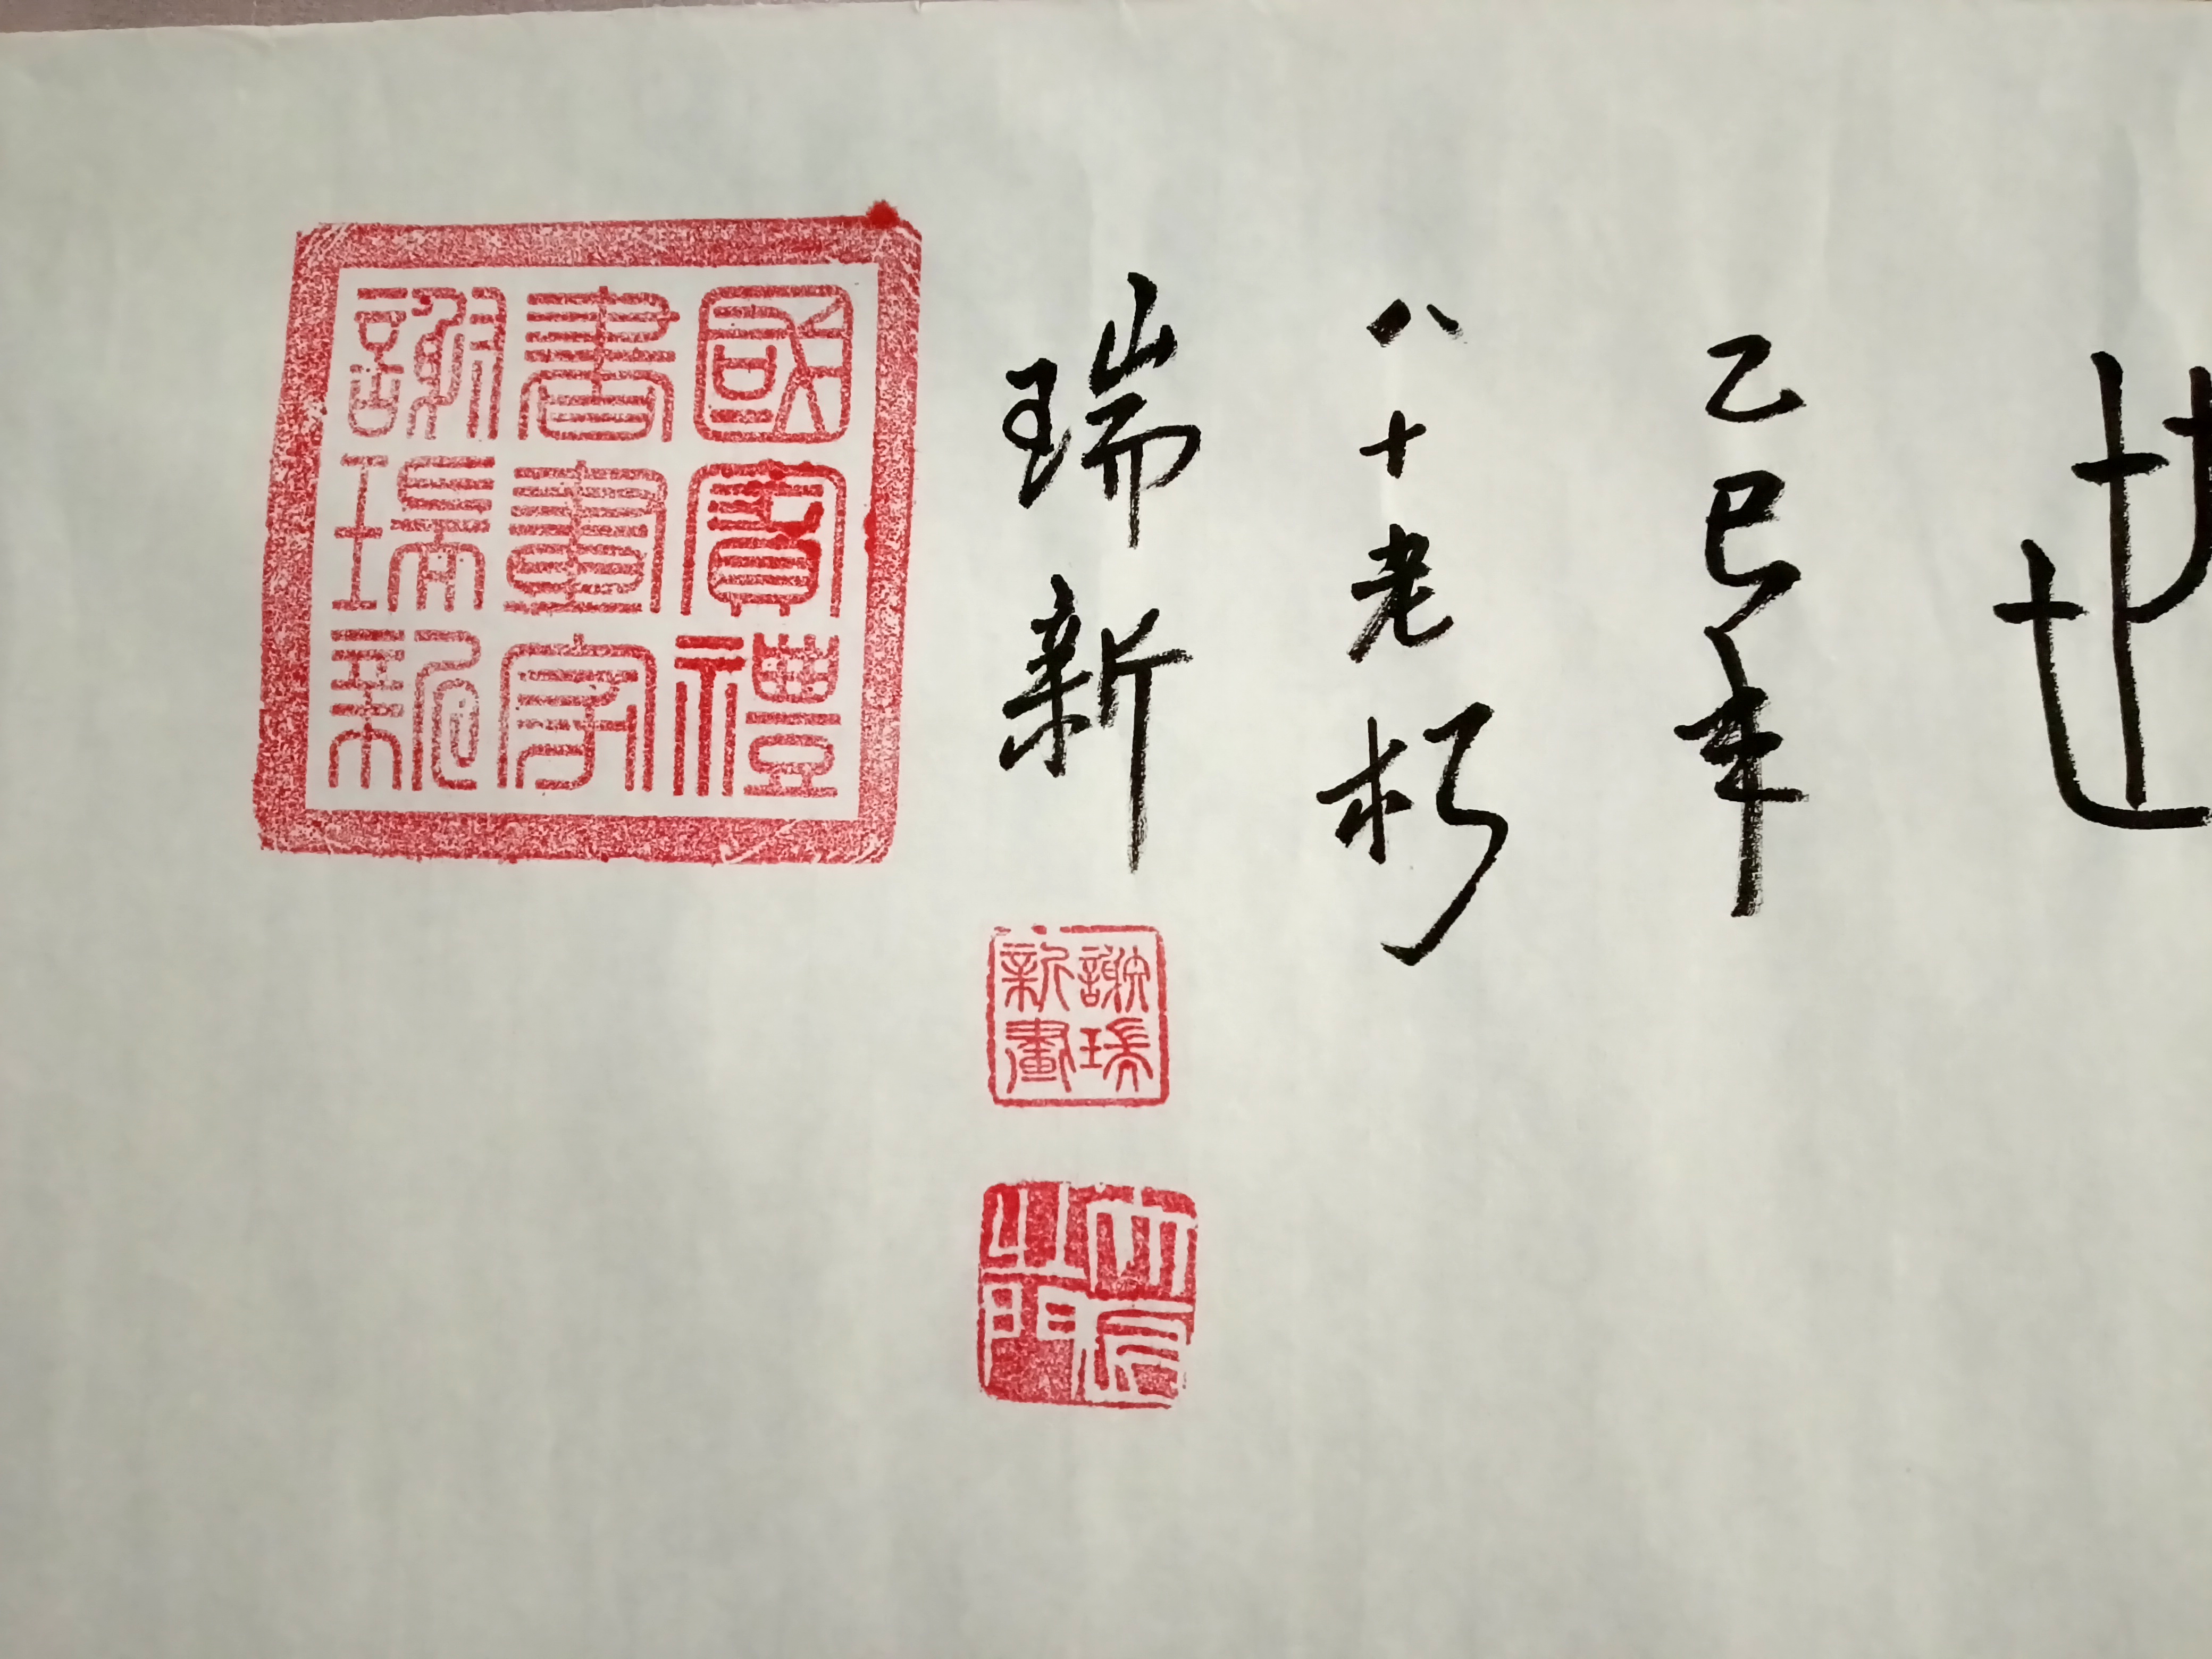 乙巳年
八十老朽
瑞新
謝瑞
新畫
國賓禮
書畫家
謝瑞新